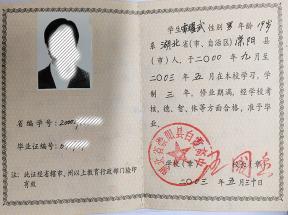 学生 性别 男 年龄 19岁
系 湖北 省(市、自治区) 县
(市)人，于二〇〇〇年九月至
二〇〇三年五月在本校学习，学
制三年，修业期满，经学校考
核，德、智、体等方面合格，准予毕
业。
省编学号：2000
毕业证编号：0
学校(章) 校长(章)
二〇〇三年五月三十日
注：此证经省辖市、州以上教育行政部门验印
有效